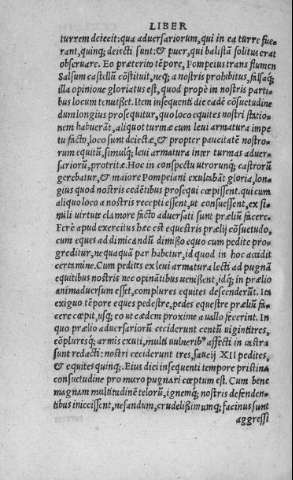 LIBER
turrem deiecit: qua aduersariorum, qui in ea turre fue-
rant, quinq; deiecti sunt: & puer, qui balistā solitus erat
obseruare. Eo præterito tēpore, Pompeius trans flumen
Salsum castellū cōstituit, neq; a nostris prohibitus, falsaq;
illa opinione gloriatus est, quod propè in nostris parti-
bus locum tenuisset. Item insequenti die eadē cōsuetudine
dum longius prosequitur, quo loco equites nostri statio-
nem habuerāt, aliquot turmæ cum leui armatura impe
tu facto, loco sunt deiectæ, & propter paucitatē nostro-
rum equitū, simulq; leui armatura inter turmas aduer-
sariorū, protritæ. Hoc in conspectu utrorunq; castrorū
gerebatur, & maiore Pompeiani exultabāt gloria, lon-
gius quod nostris cedētibus prosequi cœpissent. qui cum
aliquo loco a nostris recepti essent, ut consuessent, ex si-
mili uirtute clamore facto aduersati sunt præliū facere.
Ferè apud exercitus hæc est equestris prælij cōsuetudo,
cum eques ad dimicandū dimisso equo cum pedite pro-
greditur, nequaquā par habetur, id quod in hoc accidit
certamine. Cum pedites ex leui armatura lecti ad pugnā
equitibus nostris nec opinātibus uenissent, idq; in prælio
animaduersum esset, complures equites descenderūt. Ita
exiguo tēpore eques pedestre, pedes equestre præliū fa-
cere cœpit, usq; eo ut cædem proxime a uallo fecerint. In
quo prælio aduersariorū ceciderunt centū uigintitres,
cōpluresq; armis exuti, multi uulneribꝰ affecti in castra
sunt redacti: nostri ceciderunt tres, saucij XII pedites,
& equites quinq;. Eius diei insequenti tempore pristina
consuetudine pro muro pugnari cœptum est. Cum bene
magnam multitudinē telorū, ignemq; nostris defenden-
tibus iniecissent, nefandum, crudelissimumq; facinus sunt
aggressi